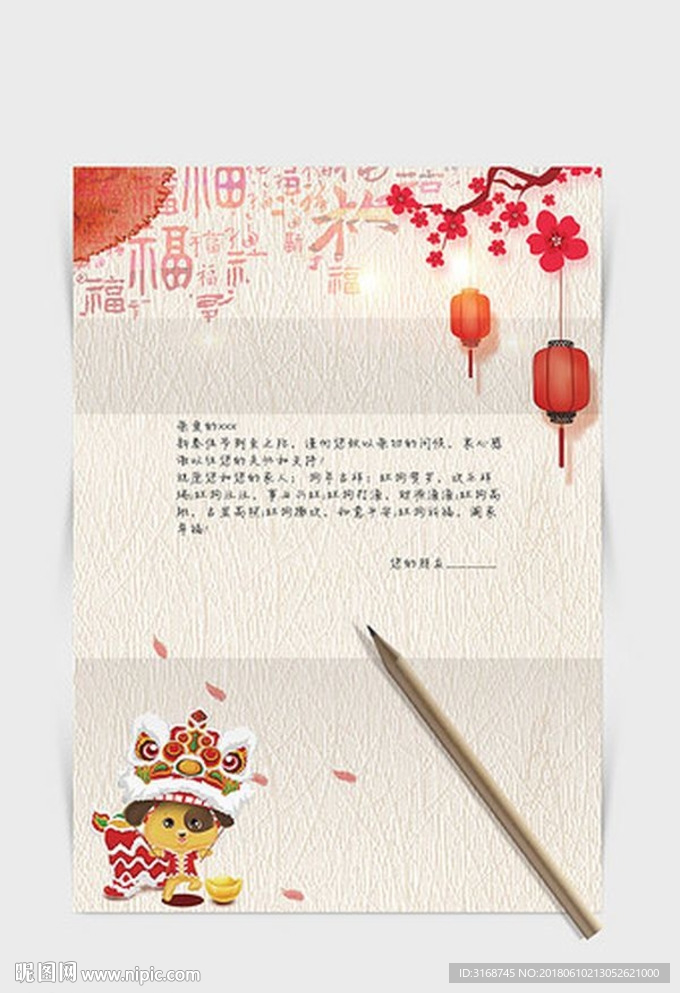 福
福
福
福
福
福
亲爱的xxx
新春佳节到来之际，谨向您致以亲切的问候，衷心感
谢以往您的关怀和支持！
祝愿您和您的家人：狗年吉祥：旺狗贺岁，欢乐祥
瑞;旺狗汪汪，事业兴旺;旺狗打滚，财源滚滚;旺狗高
照，吉星高照;旺狗撒欢，如意平安;旺狗祈福，阖家
幸福！
您的朋友________
昵图网 www.nipic.com
ID:3168745 NO:20180610213052621000